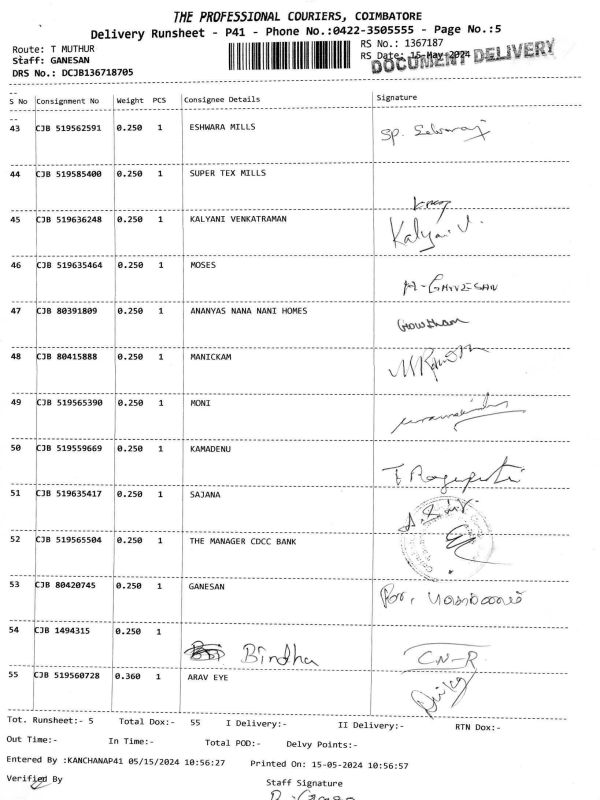 THE PROFESSIONAL COURIERS, COIMBATORE
Delivery Runsheet - P41 - Phone No.:0422-3505555 - Page No.:5
Route: T MUTHUR
RS No.: 1367187
Staff: GANESAN
RS Date: 15-May-2024
DOCUMENT DELIVERY
DRS No.: DCJB136718705
S No Consignment No Weight PCS Consignee Details Signature
43 CJB 519562591 0.250 1 ESHWARA MILLS
44 CJB 519585400 0.250 1 SUPER TEX MILLS
45 CJB 519636248 0.250 1 KALYANI VENKATRAMAN Kalyani V.
46 CJB 519635464 0.250 1 MOSES
47 CJB 80391809 0.250 1 ANANYAS NANA NANI HOMES Gowtham
48 CJB 80415888 0.250 1 MANICKAM
49 CJB 519565390 0.250 1 MONI
50 CJB 519559669 0.250 1 KAMADENU
51 CJB 519635417 0.250 1 SAJANA
52 CJB 519565504 0.250 1 THE MANAGER CDCC BANK
53 CJB 80420745 0.250 1 GANESAN
54 CJB 1494315 0.250 1 Bindha CN-R
55 CJB 519560728 0.360 1 ARAV EYE
Tot. Runsheet:- 5 Total Dox:- 55 I Delivery:- II Delivery:- RTN Dox:-
Out Time:- In Time:- Total POD:- Delvy Points:-
Entered By :KANCHANAP41 05/15/2024 10:56:27 Printed On: 15-05-2024 10:56:57
Verified By
Staff Signature